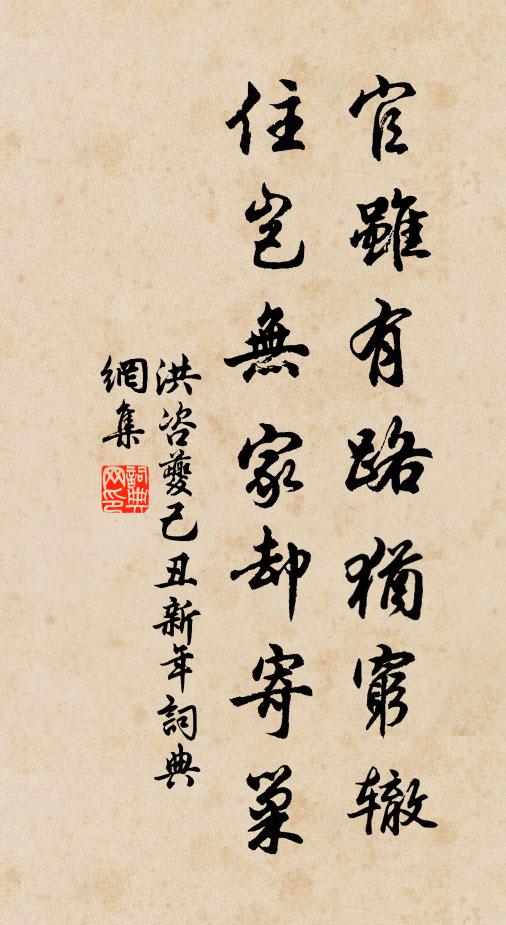 官雖有路猶窮辙
住豈無家却寄巢
洪咨夔己丑新年詞典
網集
詞典網印